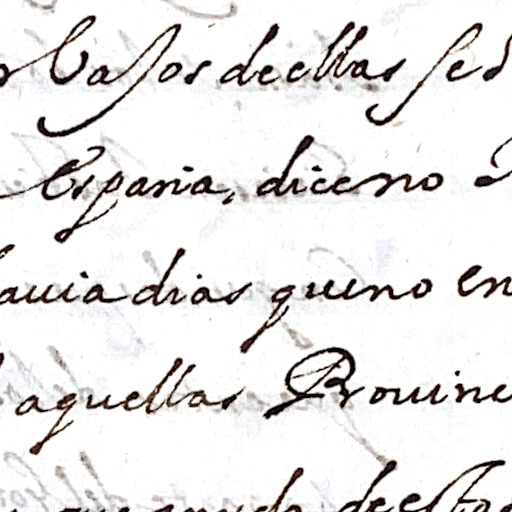 Vasos de ellas se
España, dice no
auia dias que no en
aquellas Prouinc